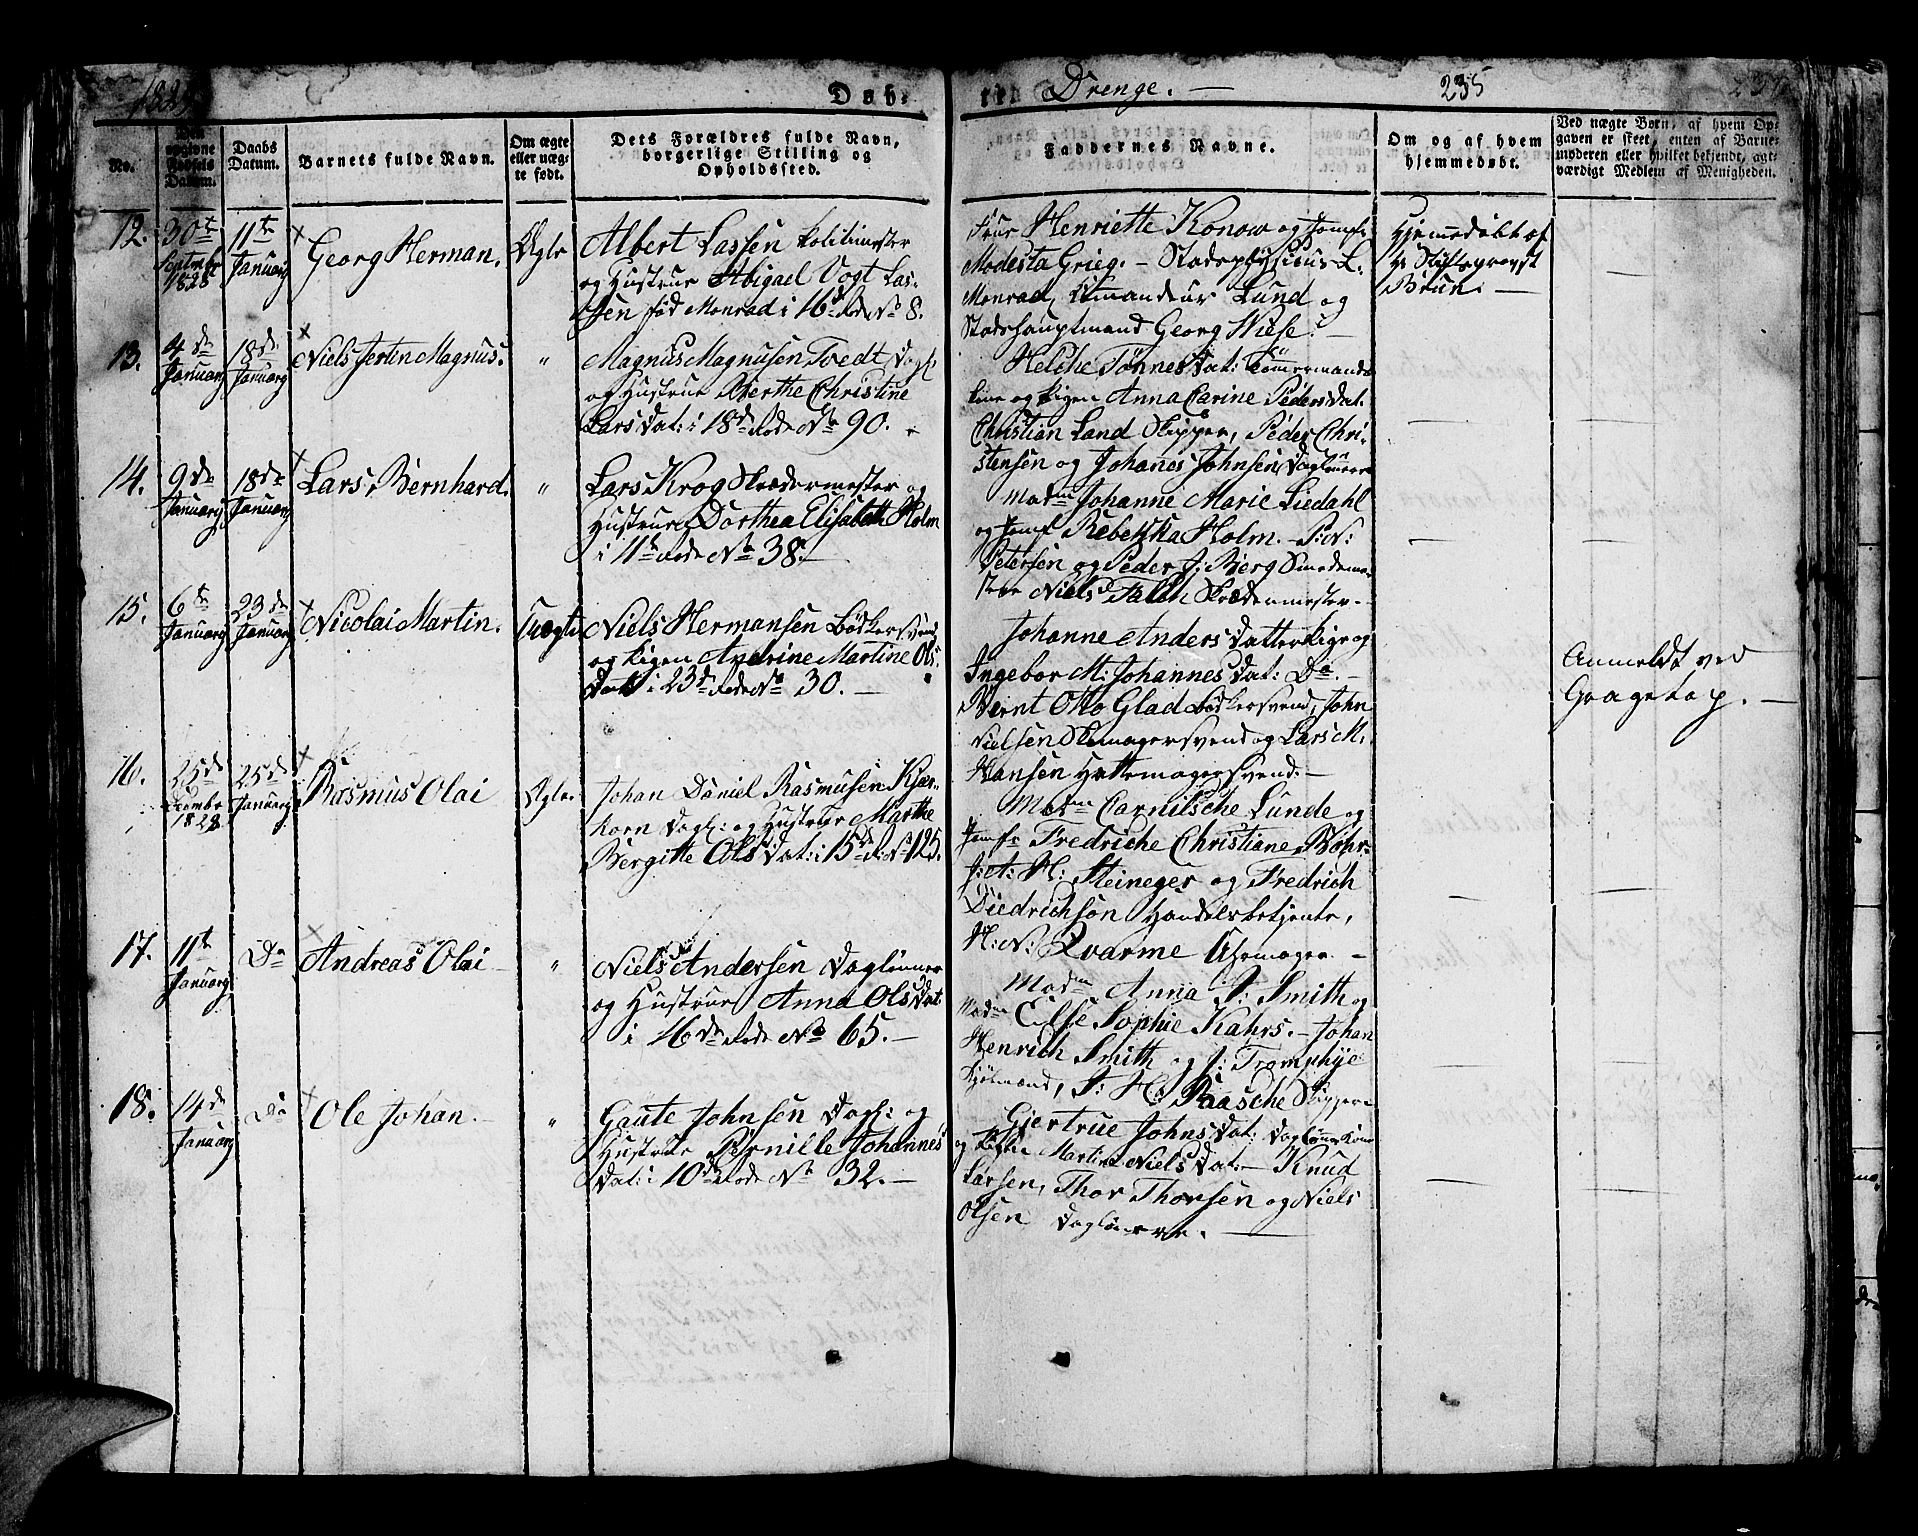 1829
Døb-
te
Drenge.
235
No.
Den
opgivne
Fødsels
Datum.
Daabs
Datum.
Barnets fulde Navn.
Om ægte
eller uæg-
te født.
Dets Forældres fulde Navn,
borgerlige Stilling og
Opholdssted.
Faddernes Navne.
Om og af hvem
hjemmedøbt.
Ved uægte Børn, af hvem Op-
gaven er skeet, enten af Barne-
moderen eller hvilket bekjendt, agt-
værdigt Medlem af Menigheden.
12.
30te
Septembr
1828
11te
Januarj
Georg Herman.
Ægte
Albert Lassen Politimester
og Hustrue Abigael Vogt Las-
sen fød Monrad i 16de Rode No 8.
Frue Henriette Konow og Jomfr
Modesta Grieg. - Stadsphysicus L.
Monrad, Lund og
Stadshauptmand Georg Wiese. -
Hjemmedøbt af
Hr Stiftsprovst
Brun. -
13.
4de
Januarj
18de
Januarj
Niels Jertin Magnus.
"
Magnus Magnusen Tvedt Dagl.
og Hustrue Berthe Christine
Larsdat: i 18de Rode No 90.
Helche Tønnesdat: Tømermands
kone og Pigen Anna Carine Pedersdat.
Christian Land Skipper, Peder Chri-
stensen og Johanes Johnsen, Daglønnere
14.
9de
Januarj
18de
Januarj
Lars Bernhard.
"
Lars Krog Skrædermester og
Hustrue Dorthea Elisabeth Holm
i 11te Rode No 38. -
Madm Johanne Marie Liedahl
og Jomf Rebekka Holm. - P: N:
Petersen og Peder J: Berg Smedeme-
stere Niels Falch Skrædermester. -
15.
6te
Januarj
23de
Januarj
Nicolai Martin.
Uægte
Niels Hermansen Bødkersvend
og Pigen Andrine Martine Ols
Datt i 23de Rode No 30. -
Johanne Anders Datter Pige og
Ingebor M: Johannesdat: Do. -
Bernt Otto Glad Bødkersvend, John
Nielsen Skomagersvend og Lars M.
Hansen Hattemagersvend. -
Anmeldt ved
16.
25de
Decembr
1828
25de
Januarj
Rasmus Olai
Ægte.
Johan Daniel Rasmusen Kjær-
Korn Dagl: og Hustrue Marthe
Bergitte Olsdat: i 15de R: No 125.
Madm Lunde og
Jomfr Fredriche Christiane Bøhr-
J: A: H: Steineger og Fredrich
Diedrichsøn Handelsbetjente,
H: N: Qvarme Uhrmager. -
17.
11te
Januarj
Do
Andreas Olai
"
Niels Andersen Daglønner
og Hustrue Anna Olsdat
i 16de Rode No 65. -
Madm Anna F: Smith og
Madm Else Sophie Kahrs. - Johan
Henrich Smith og J: Tromphye
Kjølmænd, J: H: Paasche Skipper
18.
14de
Januarj
Do
Ole Johan.
"
Gaute Johnsen Dagl: og
Hustrue Pernille Johannes
Dat: i 10de Rode No 32. -
Gjertrue Johnsdat: Daglønnerkone
og Pigen Martine Nielsdat: - Knud
Larsen, Thor Thorsen og Niels
Olsen Daglønnere.